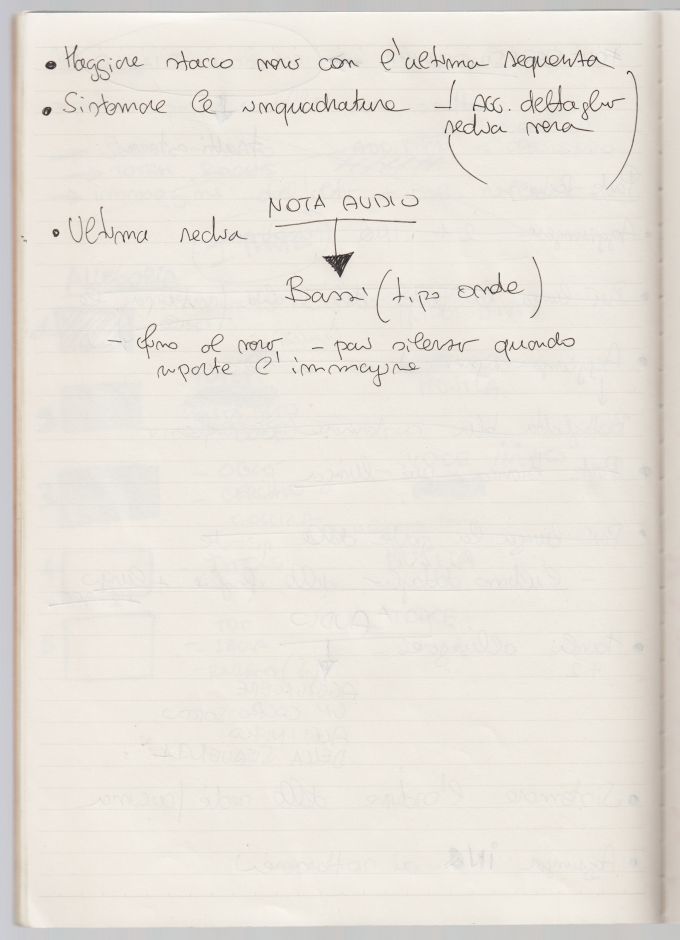 • Maggiore stacco nero con l'ultima sequenza
• Sistemare le inquadrature → Acc. dettaglio
sedia nera
NOTA AUDIO
• Ultima sedia
Bassi (tipo onde)
- fino al nero - poi silenzio quando
riparte l'immagine